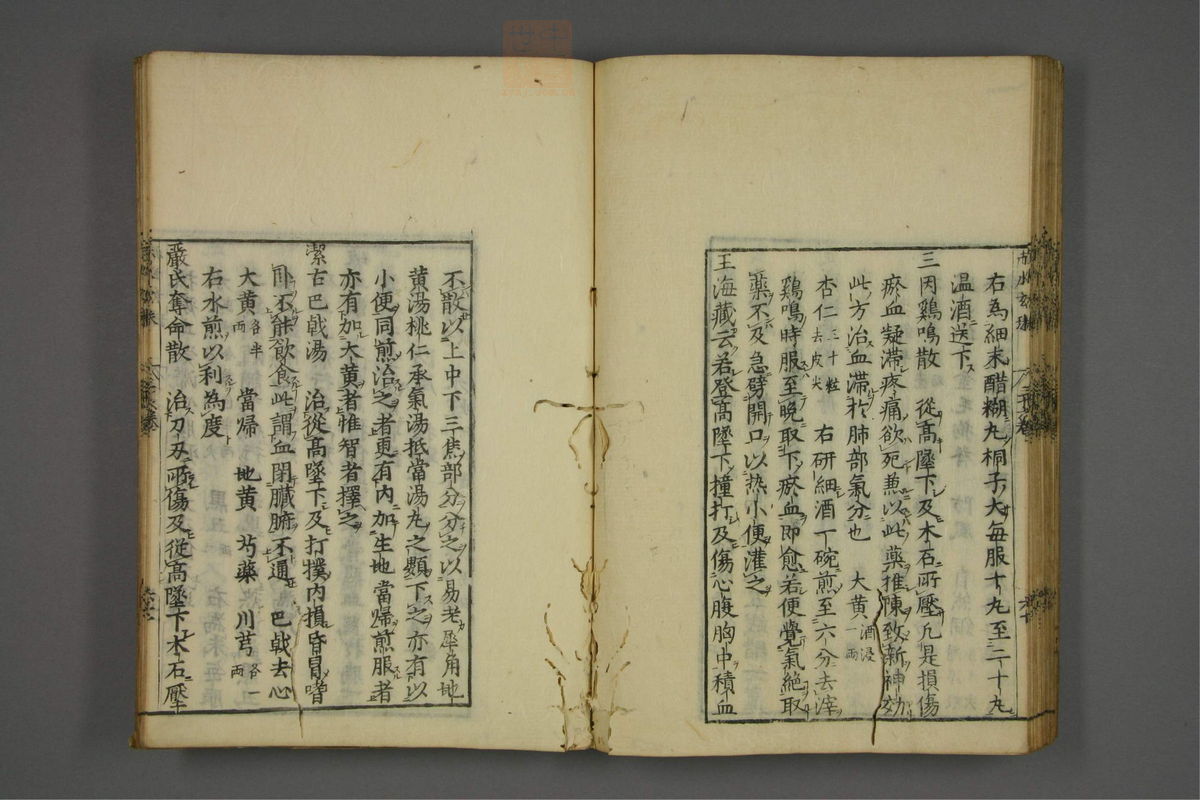 右為細末醋糊丸桐子大每服十丸至二十丸
温酒送下
三因鷄鳴散 從髙墜下及木石所壓凢是損傷
瘀血凝滯疼痛欲死兼以此藥推陳致新神効
此方治血滯於肺部氣分也 大黄酒浸一兩
杏仁三十粒去皮尖 右研細酒一碗煎至六分去滓
鷄鳴時服至晩取下瘀血即愈若便覺氣絶取
藥不及急劈開口以热小便灌之
王海藏云若登髙墜下撞打及傷心腹胸中積血
不散以上中下三焦部分分之以易老犀角地
黄湯桃仁承氣湯抵當湯丸之類下之亦有以
小便同煎治之者更有内加生地當帰煎服者
亦有加大黄者惟智者擇之
潔古巴戟湯 治從髙墜下及打撲内損昏冒嗜
卧不能飲食此謂血閉臟腑不通 巴戟去心
大黄各半兩 當帰 地黄 芍藥 川芎各一兩
右水煎以利為度
嚴氏奪命散 治刀刃所傷及從髙墜下木石壓